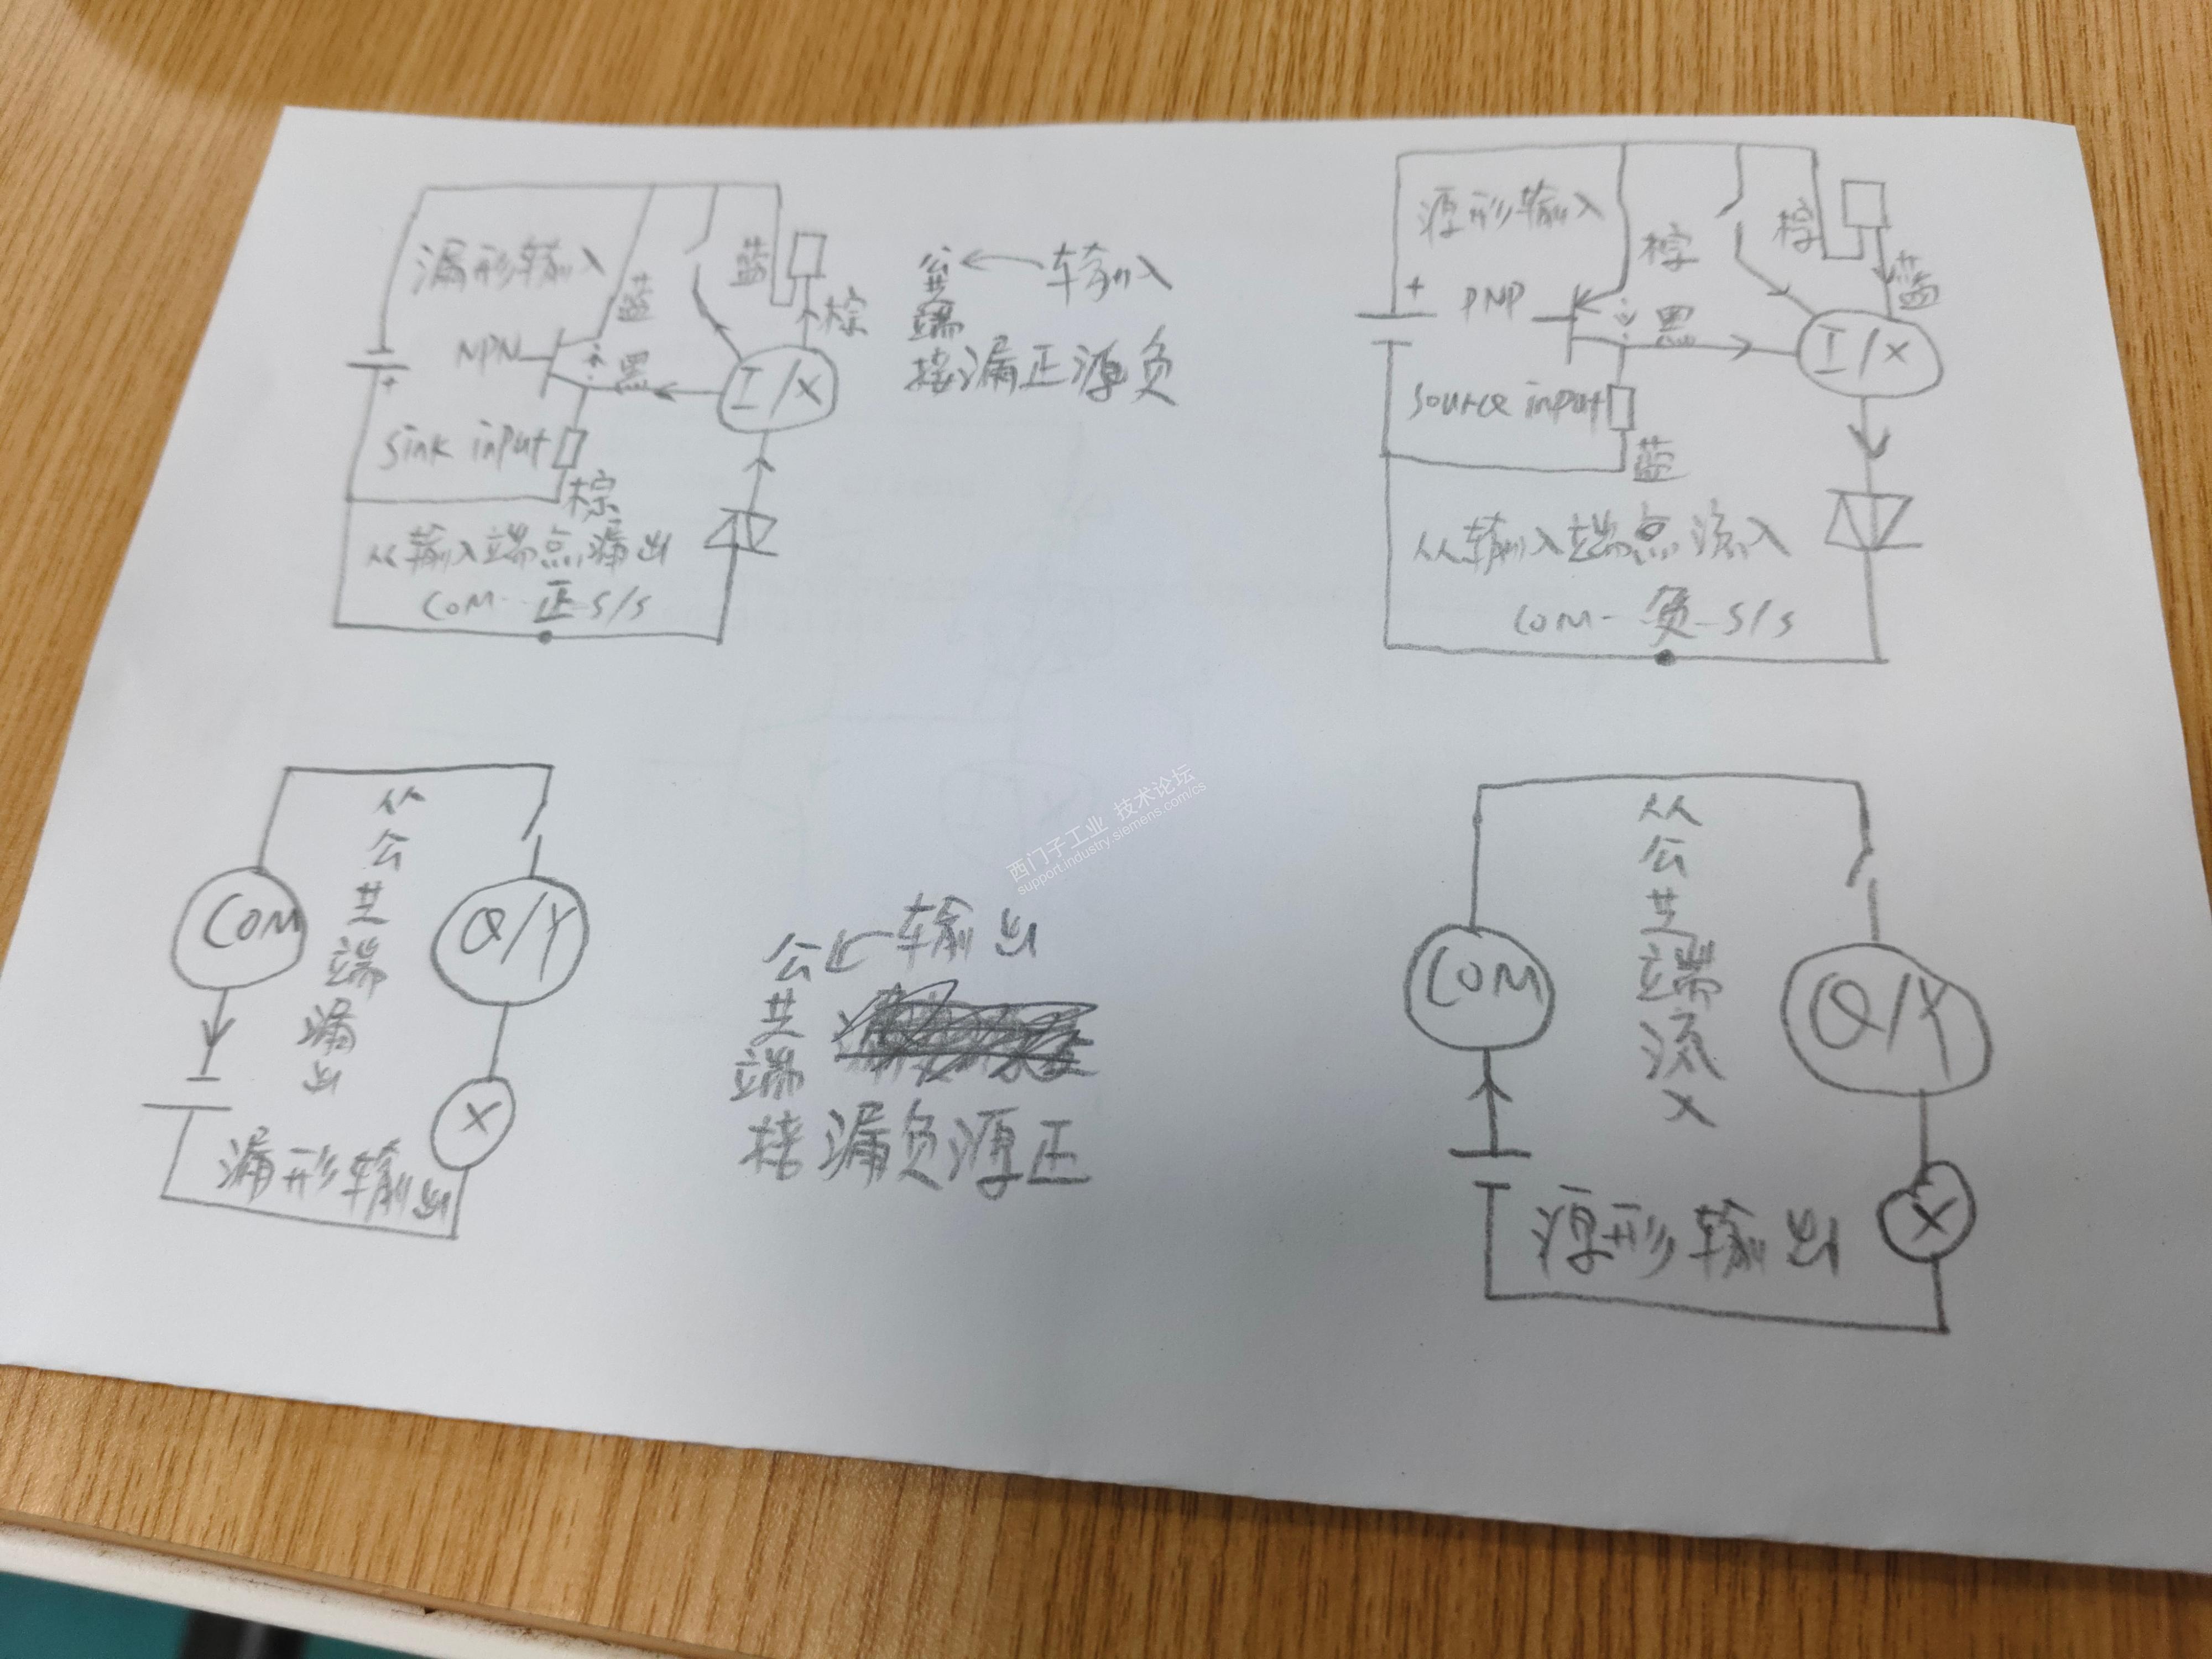 漏形输入
蓝
蓝
棕
NPN
黑
I/X
sink input
棕
从输入端点漏出
COM-正-S/S
公共端 ← 输入
接漏正源负
源形输入
棕
棕
蓝
+
PNP
黑
I/X
source input
蓝
从输入端点流入
COM-负-S/S
+
COM
从公共端漏出
Q/Y
X
漏形输出
西门子工业 技术论坛
support.industry.siemens.com/cs
公共端 ← 输出
接漏负源正
COM
从公共端流入
Q/Y
X
源形输出